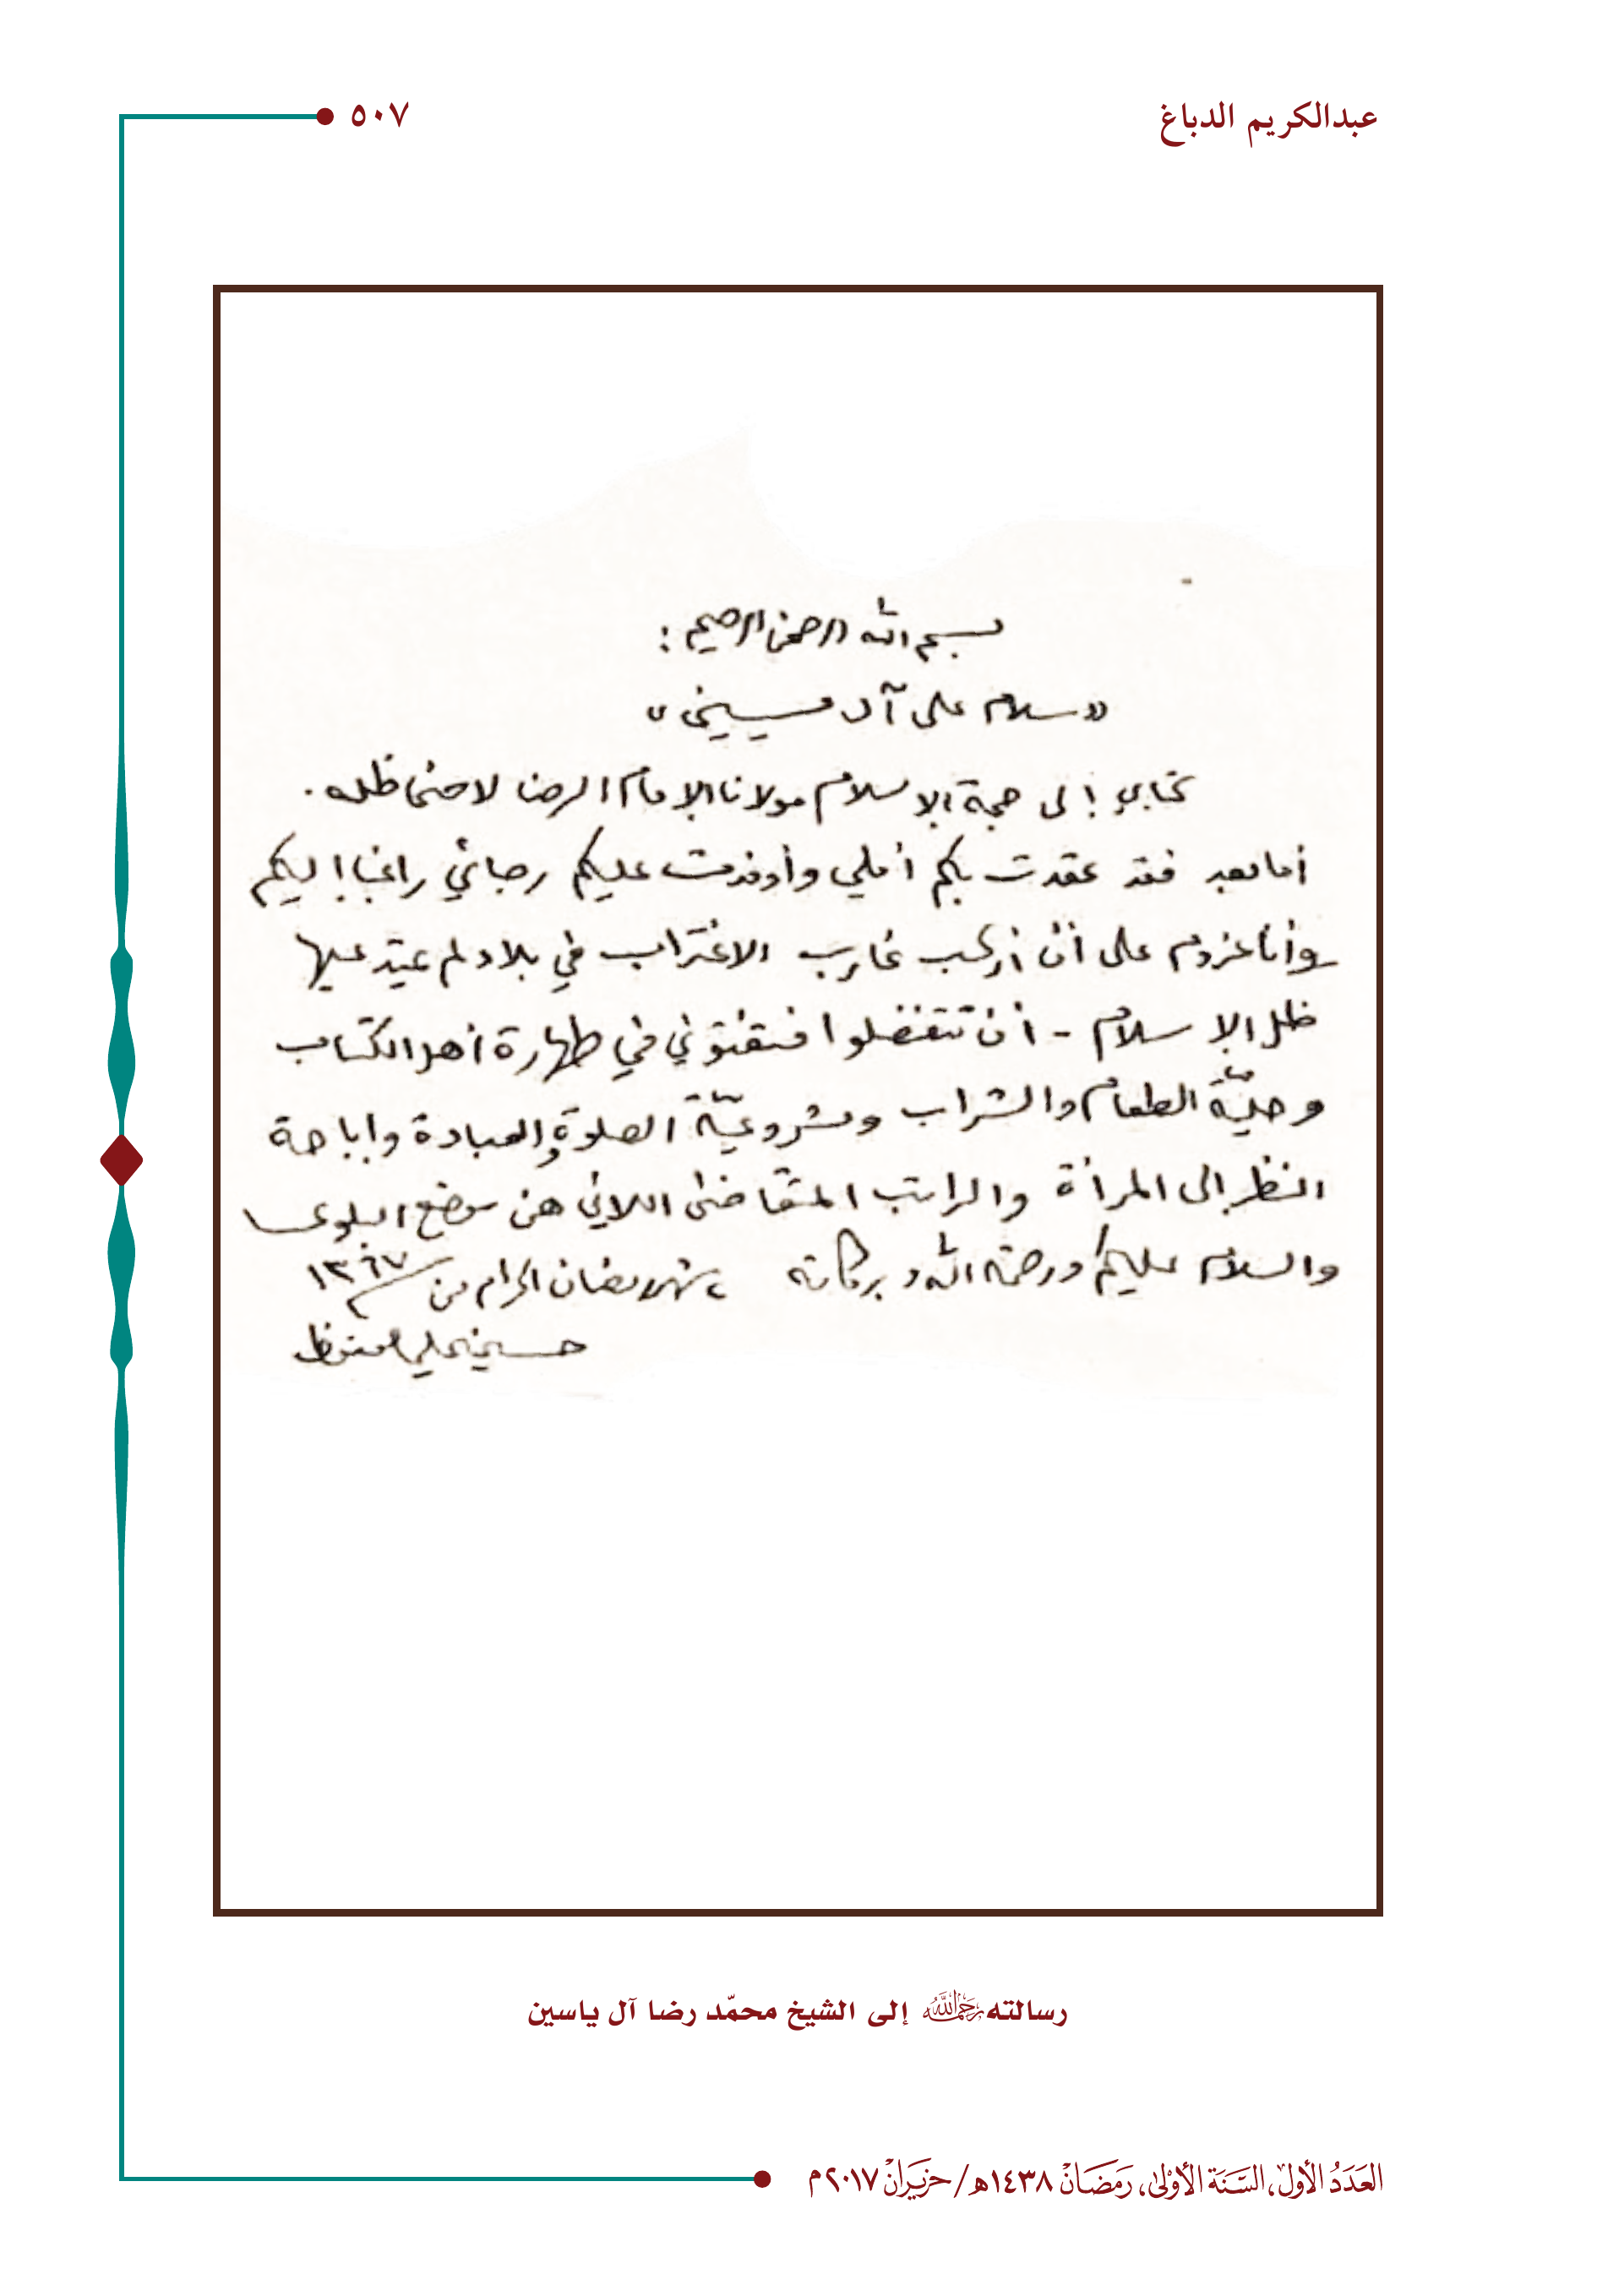 عبدالكريم الدباغ
٥٠٧
بسم الله الرحمن الرحيم :
«سلام على آل يسين»
كتابي إلى حجة الإسلام مولانا الإمام الرضا لا ضحى ظله .
أما بعد فقد عقدت بكم أملي وأوفدت عليكم رجائي راغبا إليكم
وأنا عزوم على أن أركب غارب الاغتراب في بلاد لم يمتد عليها
ظل الإسلام - أن تتفضلوا فتفتوني في طهارة أهل الكتاب
وحليّة الطعام والشراب ومشروعيّة الصلوة والعبادة واباحة
النظر إلى المرأة والراتب المتقاضى اللائي هن موضع البلوى
والسلام عليكم ورحمة الله وبركاته شهر رمضان الحرام من ١٣٦٧
حسين علي محفوظ
رسالته رحمه الله إلى الشيخ محمّد رضا آل ياسين
العَدَدُ الأول، السَّنَة الأوْلىٰ، رَمَضَانْ ١٤٣٨هـ/حزيَرانْ ٢٠١٧م